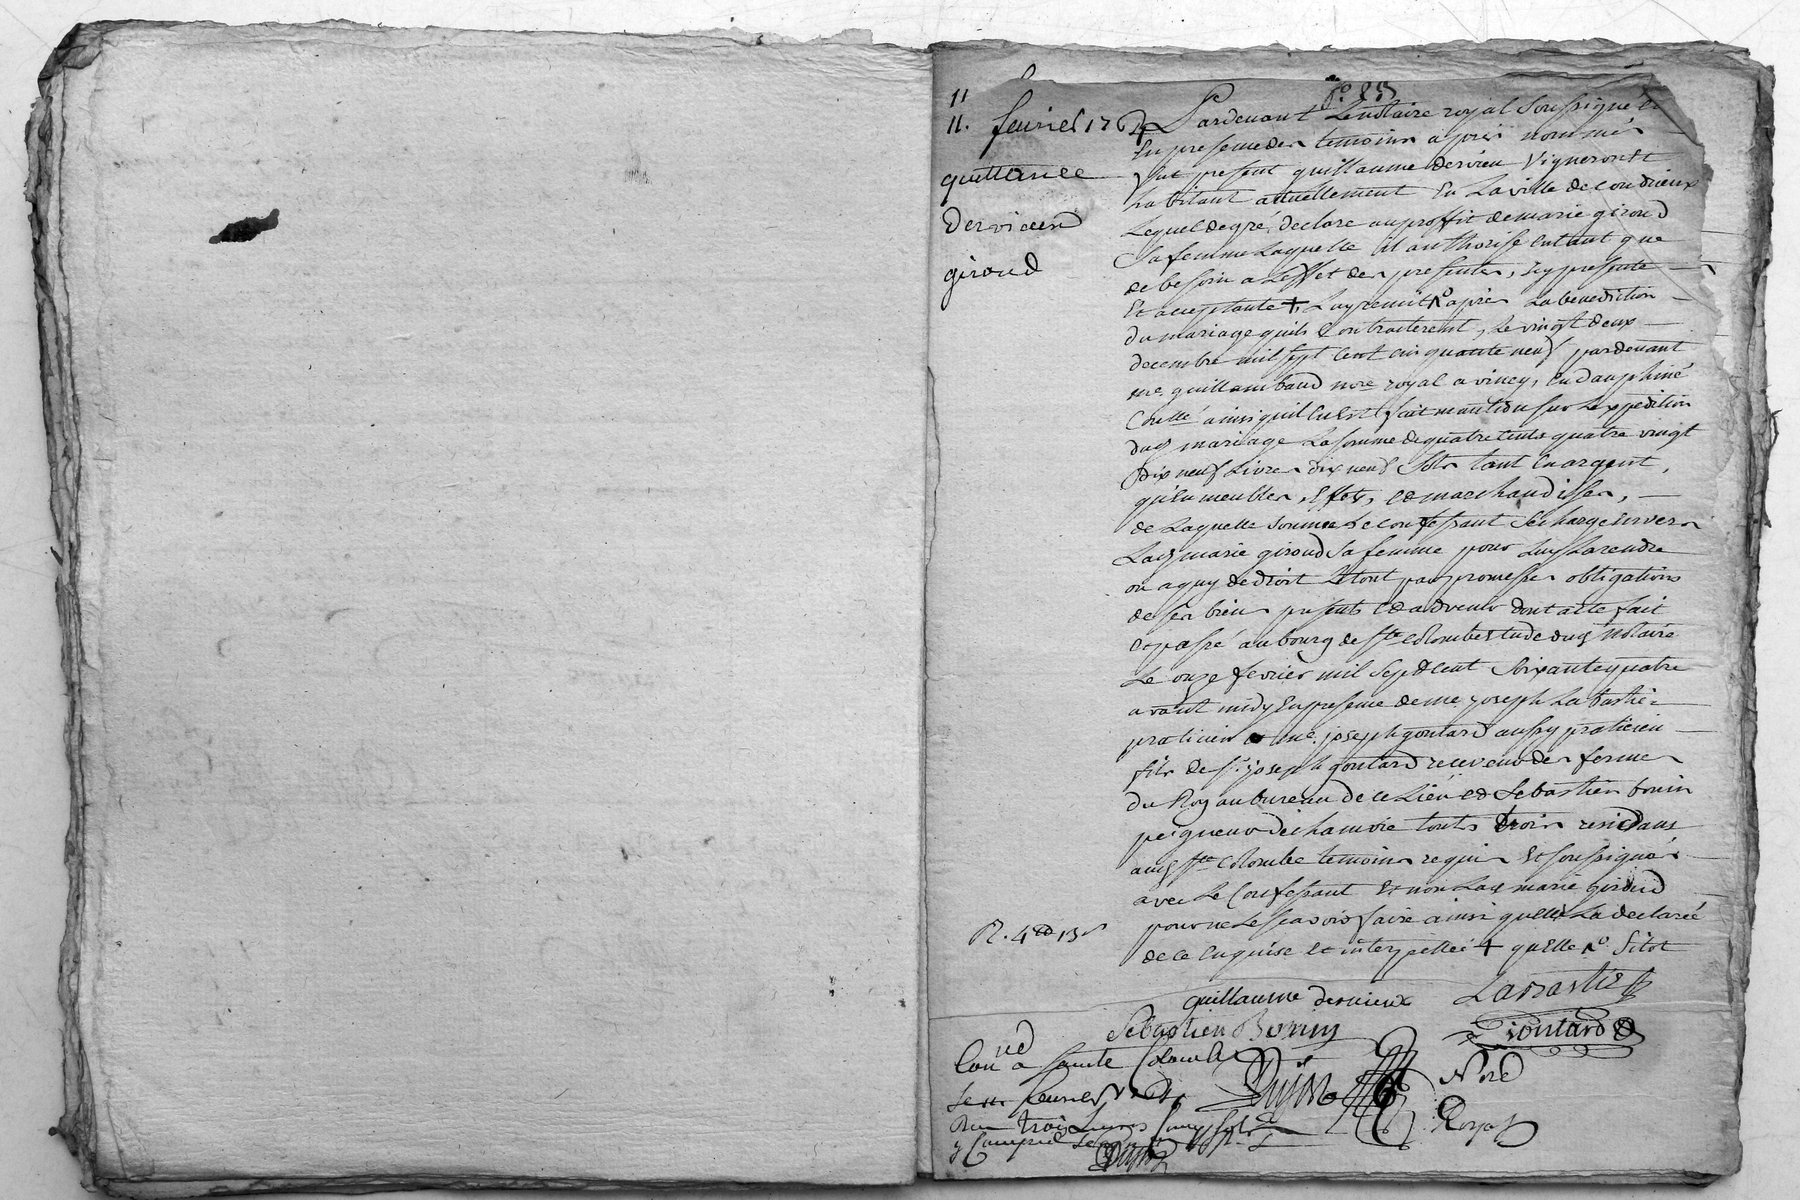 11
11. fevrier 1764
quittance
dervieux
giroud
f.º 85
Pardevant Le notaire royal soussigné et
En presence des temoins après nommés
fut present guillaume dervieu vigneron et
habitant actuellement En La ville de Condrieux
Lequel de gré, declare au proffit de marie giroud
sa femme Laquelle il authorise Entant que
de besoin a Leffet des presentes, icy presente
Et acceptante +, Lay remit après La benediction
du mariage quils Contracterent, Le vingt deux
decembre mil sept Cent cinquante neuf pardevant
me, guillambaud nore royal a , En dauphiné
Coнllé ainsi quil En Est fait mantion sur Lexpedition
dud mariage La somme de quatre Cents quatre vingt
Dix neuf Livres dix neuf sols tant En argent,
qu'en meubles, Effets, Et marchandisses,
de Laquelle somme Le confessant se charge Envers
Lad marie giroud sa femme pour Luy La rendre
ou a quy de droit Le tout par promesses obligations
de ses biens presents Et advenir dont acte fait
Et passé au bourg de Ste Colombe Etude dud Notaire
Le onze fevrier mil sept Cent soixante quatre
avant midy En presence de me joseph Labastie
praticien et me. joseph goutard aussy praticien
fils de sr. joseph goutard receveur des fermes
du Roy au bureau de ce Lieu Et sebastien bonin
peigneur de chanvre touts trois residans
aud Ste Colombe temoins requis Et soussignés
avec Le Confessant Et non Lad marie giroud
pour ne Le scavoir faire ainsi quelle La declarée
de ce Enquise Et interpellée + quelle sitot
R. 4 13 s
guillaume dervieux Labastie
Sebastien Bonin Goutard
Con a sainte Colombe
Le 11 fevrier 1764
Reçu trois Livres
y Compris
Nore
Royal